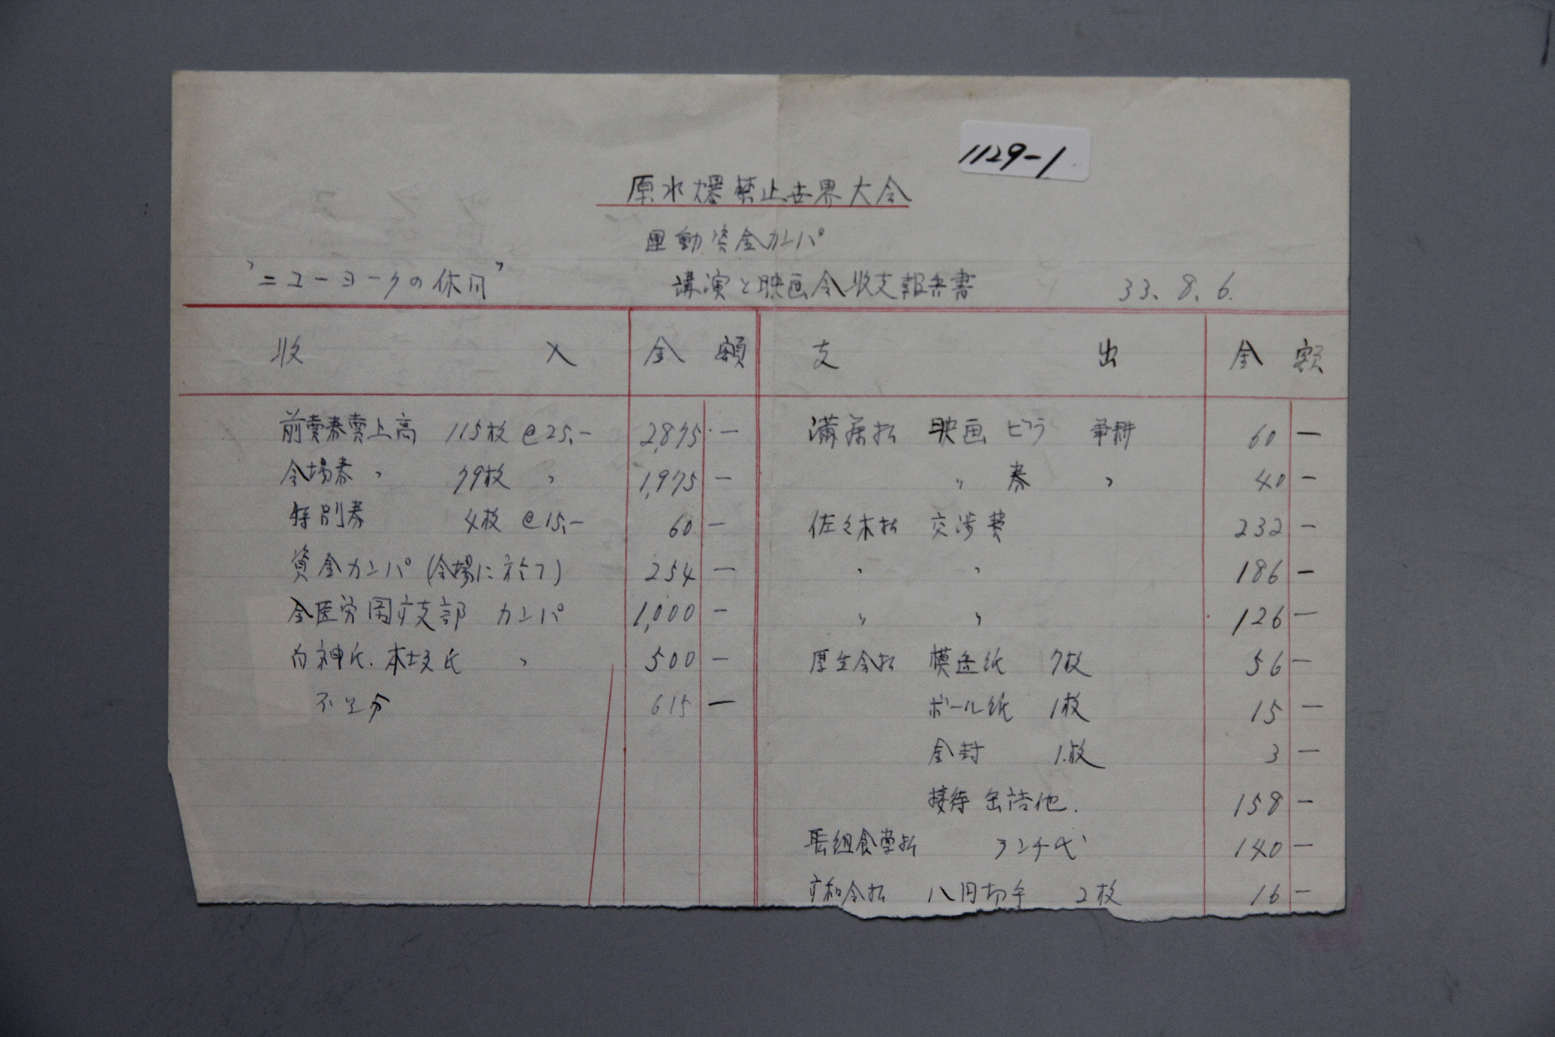 1129-1
原水爆禁止世界大会
運動資金カンパ
"ニューヨークの休日" 講演と映画会収支報告書 33.8.6.
収入 金額 支出 金額
前売券売上高 115枚 @25.- 2,875 - 映画ビラ 60 -
会場券 〃 79枚 〃 1,975 - 〃 券 〃 40 -
特別券 4枚 @15.- 60 - 佐々木払 交渉費 232 -
資金カンパ (会場に於て) 254 - 〃 〃 186 -
全医労 支部 カンパ 1,000 - 〃 〃 126 -
白神氏. 本坂氏 〃 500 - 厚生会払 模造紙 7枚 56 -
不足分 615 - ボール紙 1枚 15 -
封 1枚 3 -
接待 缶詰他. 158 -
食堂払 ランチ代 140 -
払 八円切手 2枚 16 -